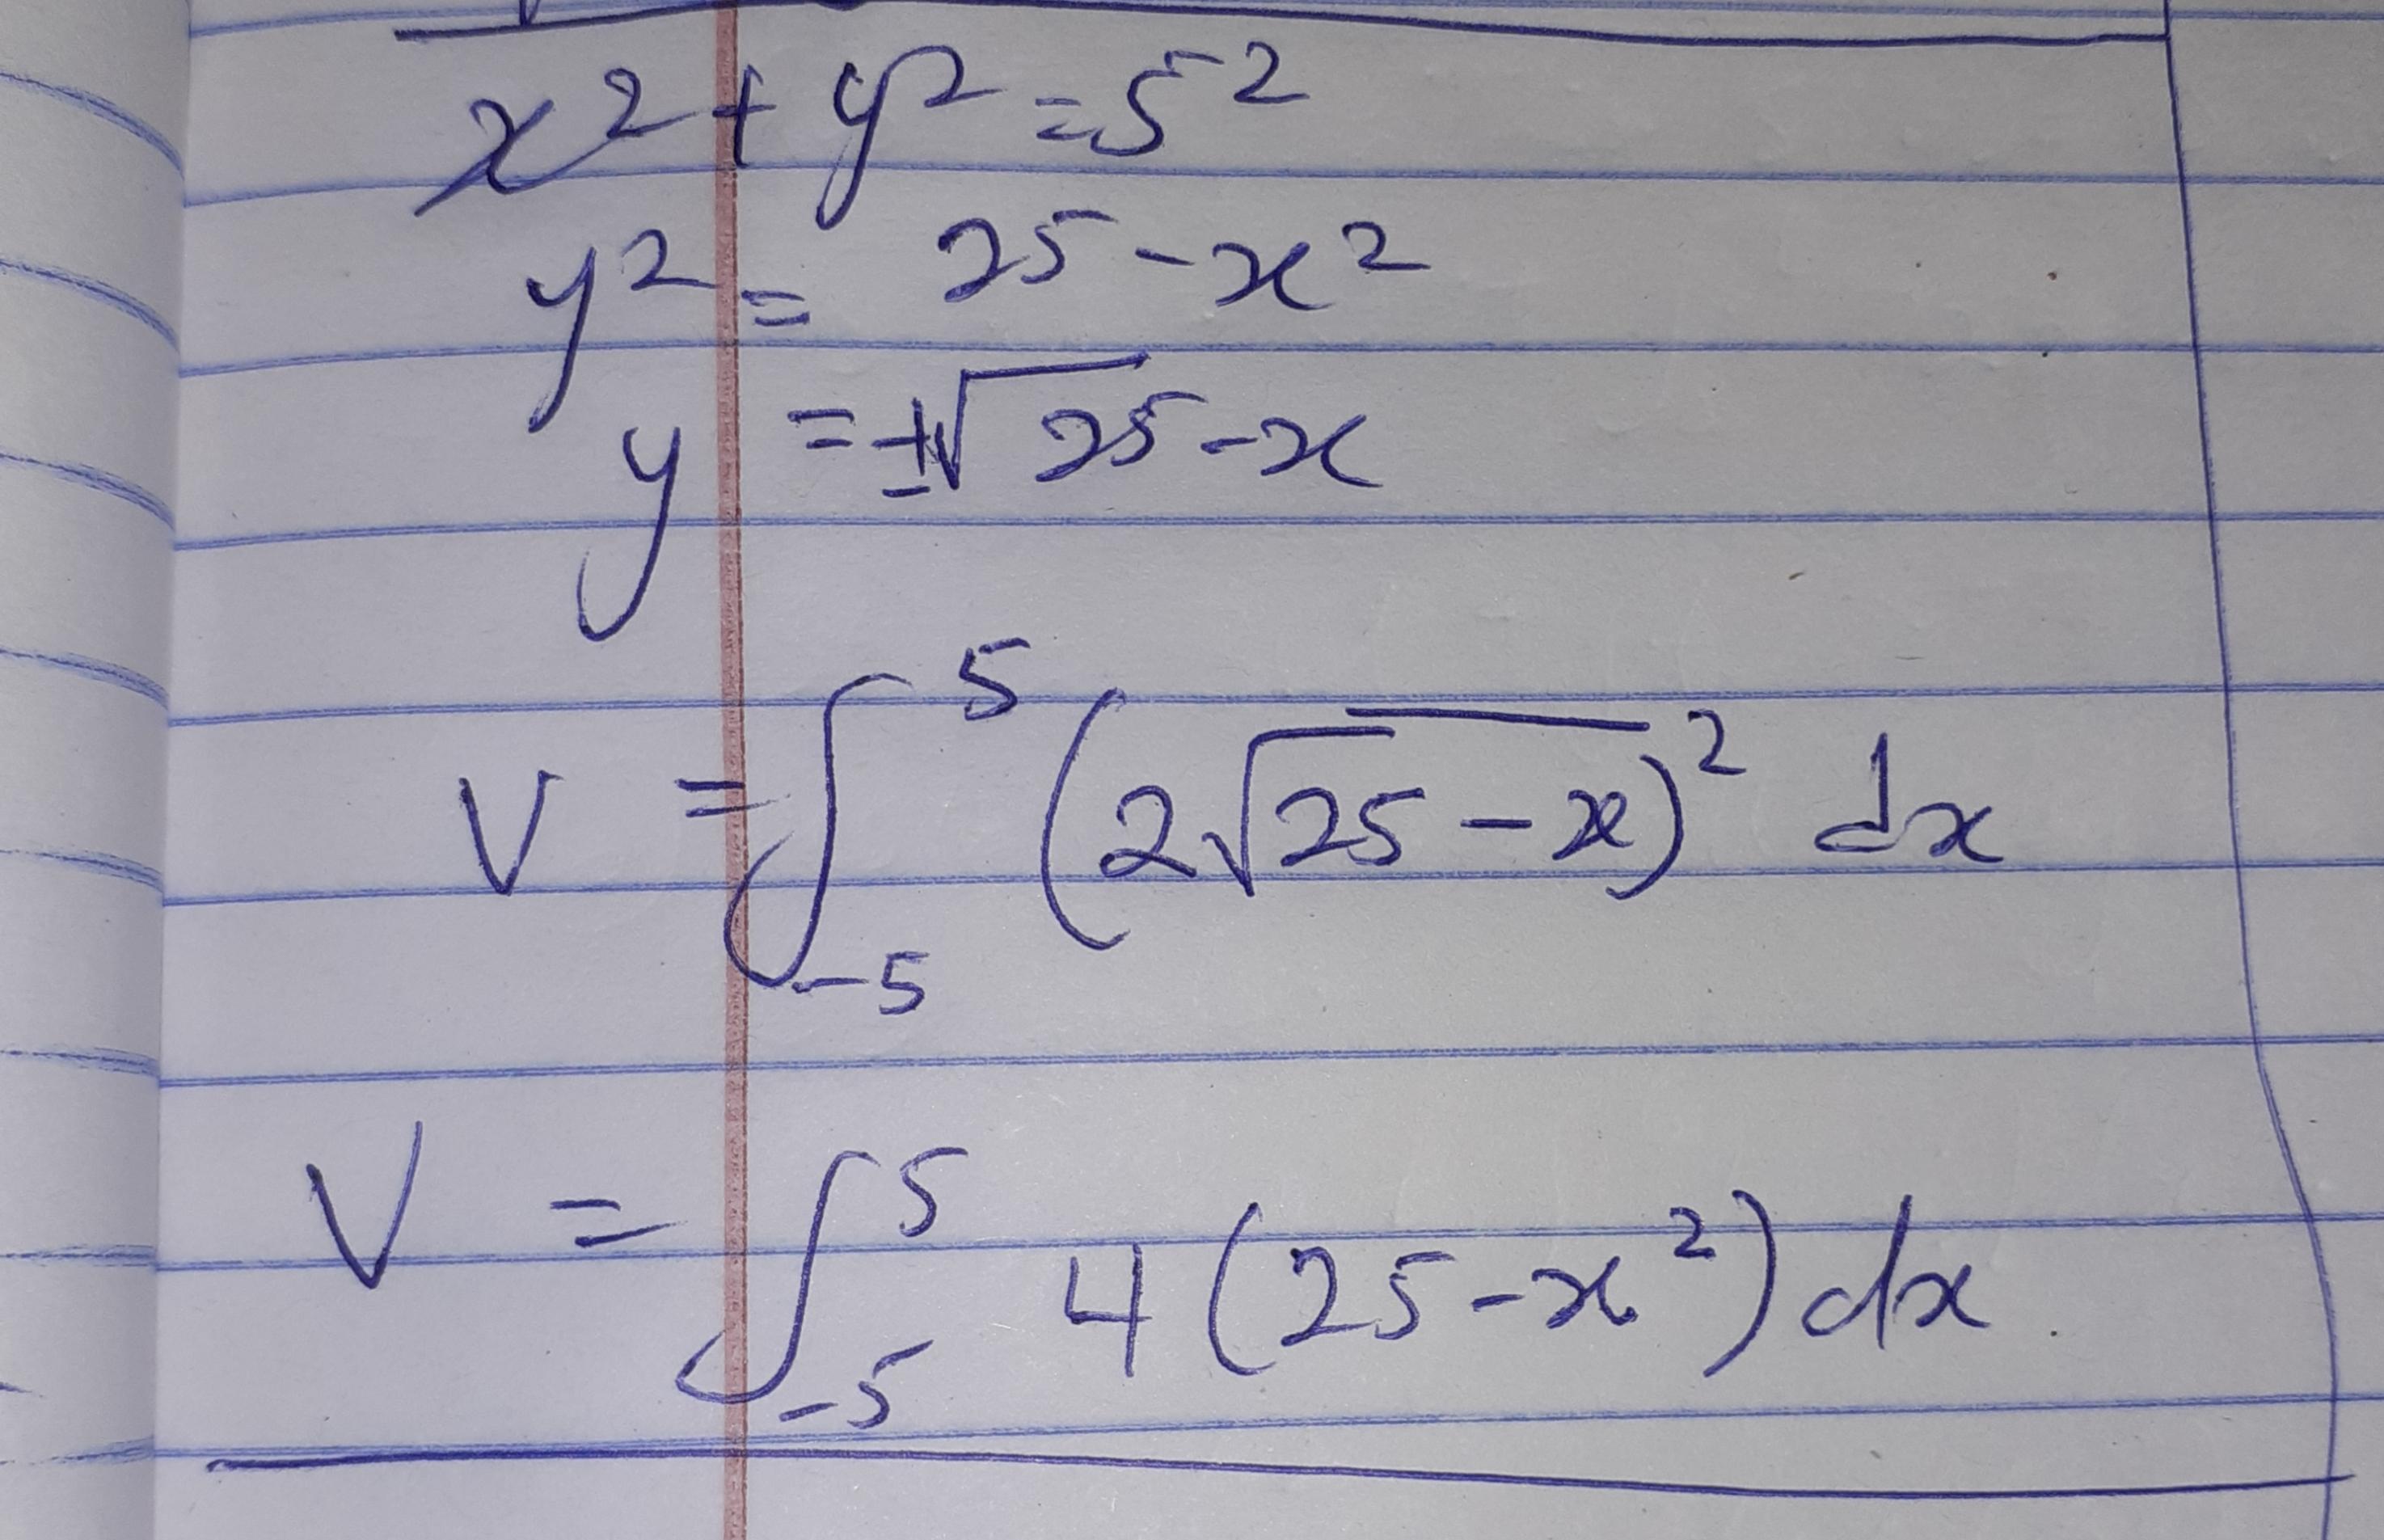 x² + y² = 5²
y² = 25 - x²
y = ±√25 - x
V = ∫₋₅⁵ (2√25 - x)² dx
V = ∫₋₅⁵ 4(25 - x²) dx